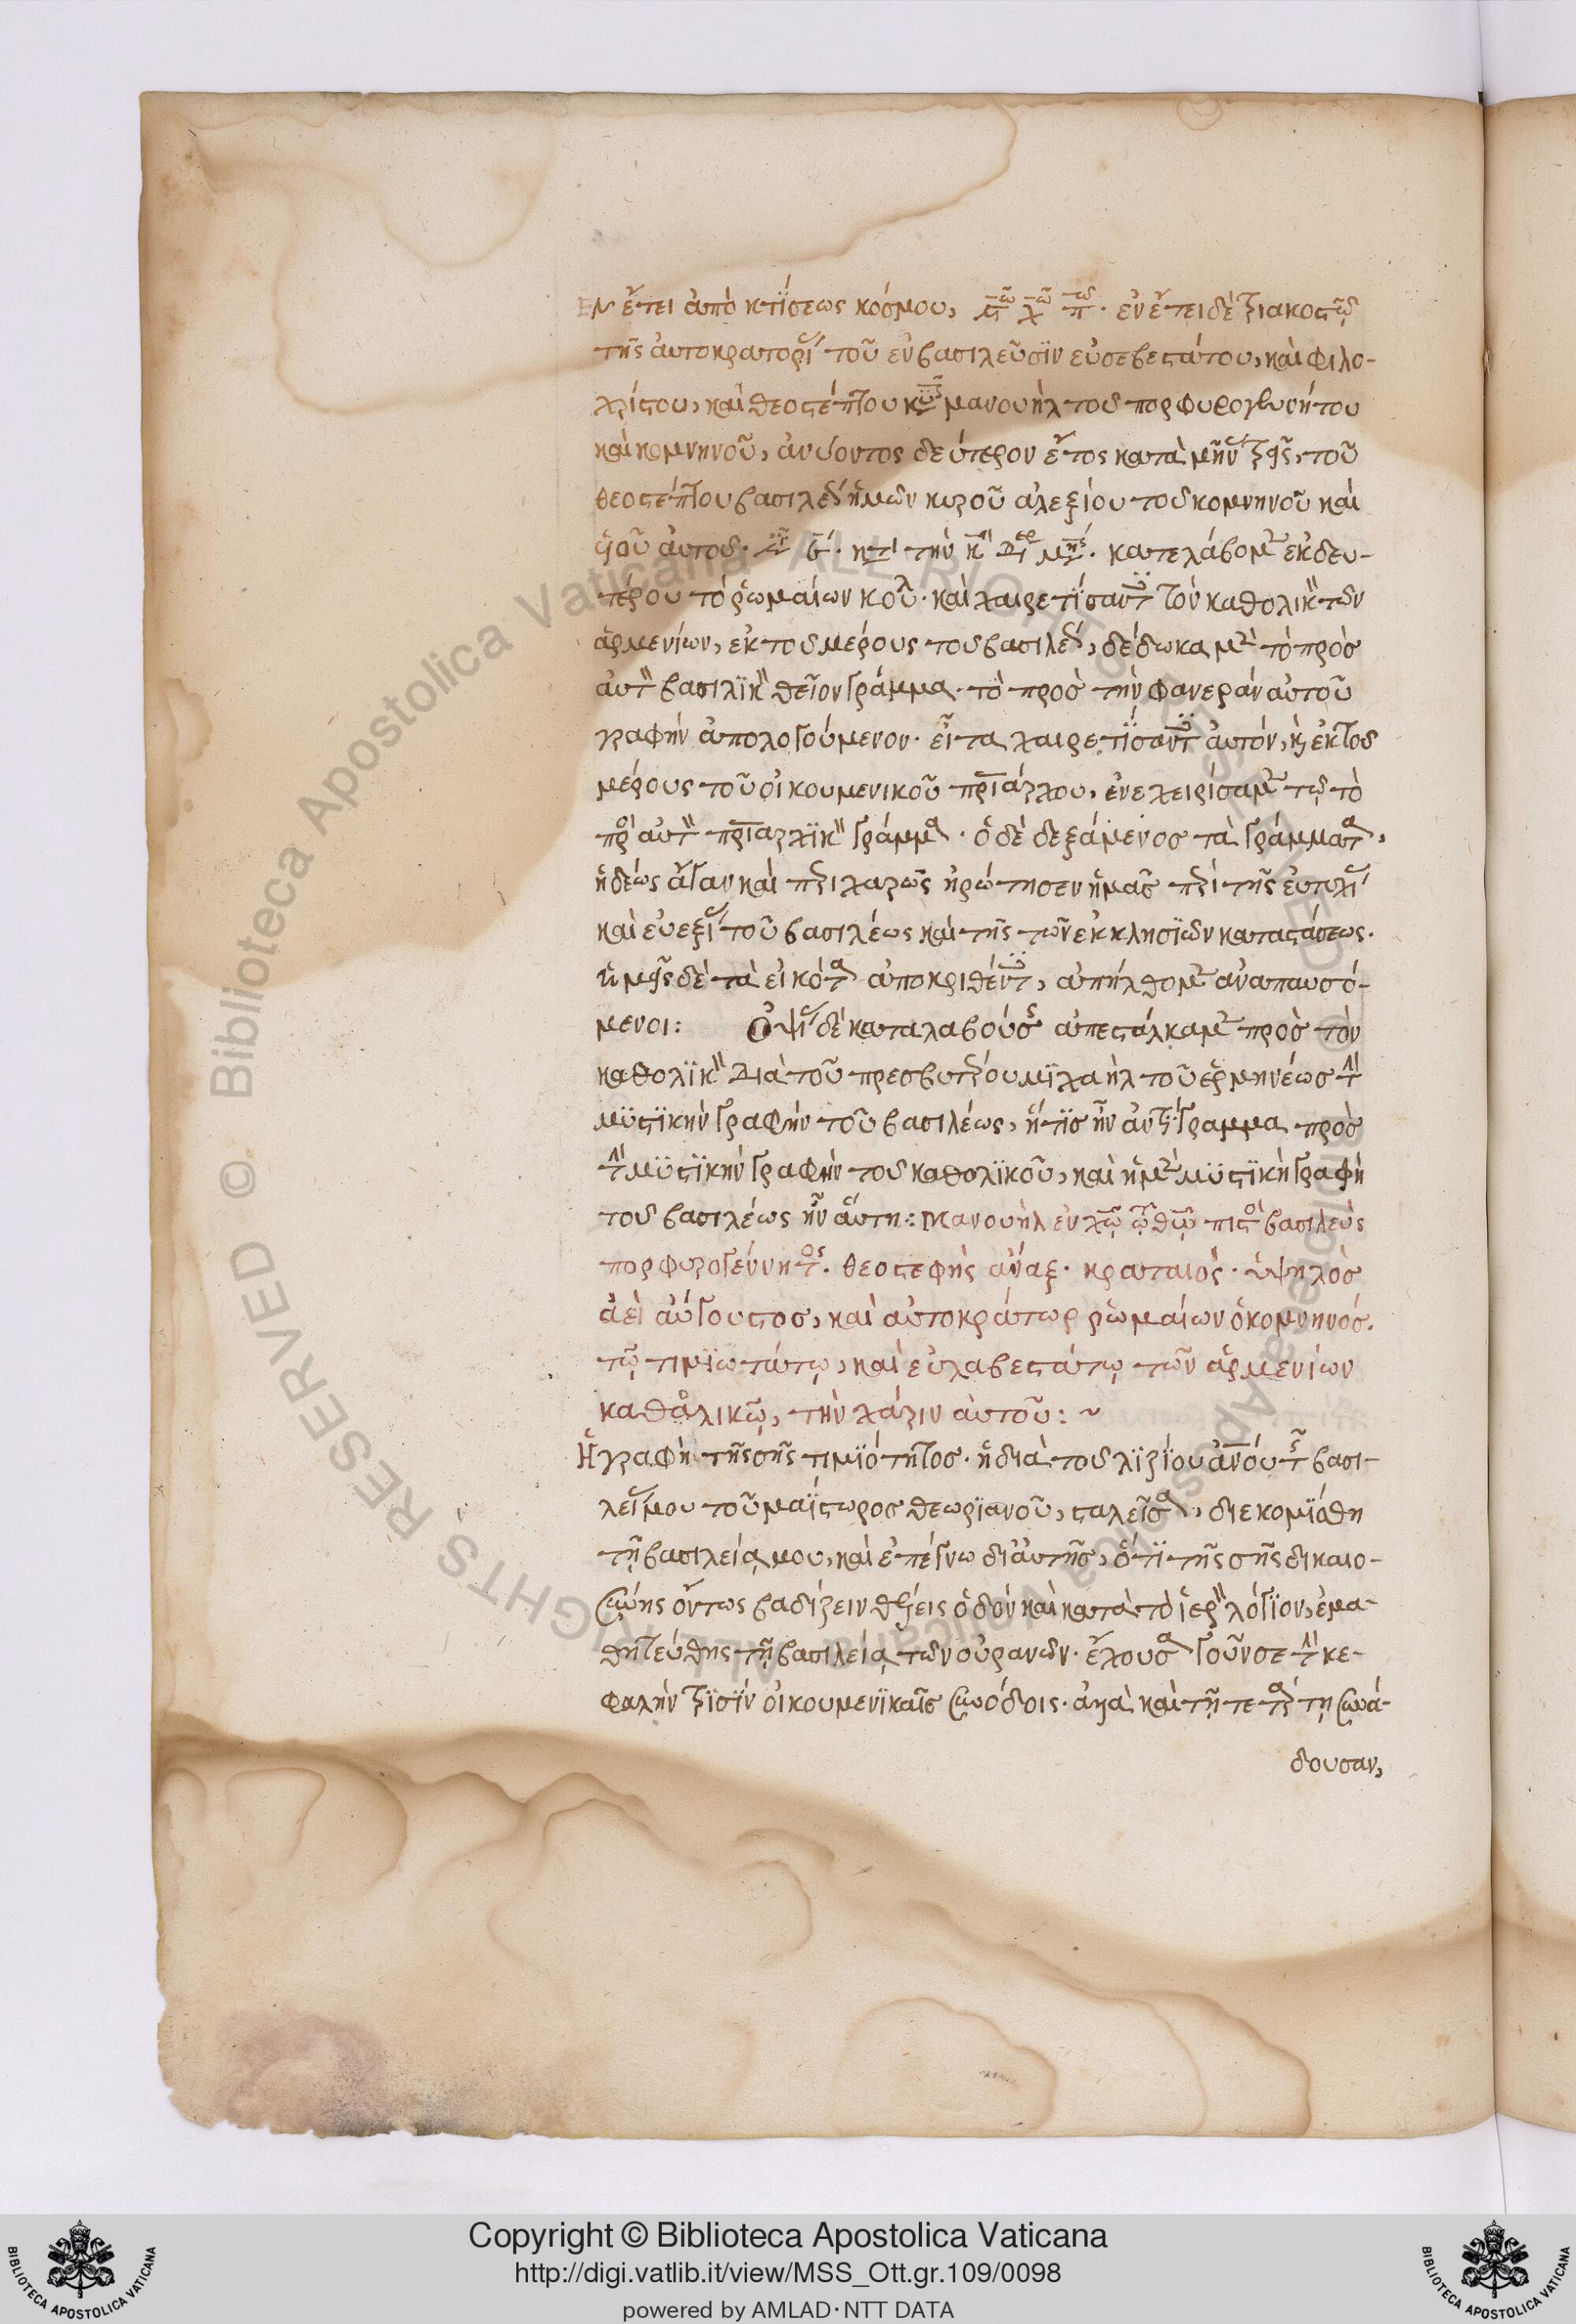 Ἐν ἔτει ἀπὸ κτίσεως κόσμου, ἐν ἔτει δὲ τριακοστῶ
τῆς αὐτοκρατορί τοῦ ἐν βασιλεῦσϊν εὐσεβεστάτου, καὶ φιλο-
χρίστου, καὶ θεοστέπτου μανουὴλ τοῦ πορφυρογεννήτου
καὶ κομνηνοῦ, ἀνύοντος δεύτερον ἔτος κατὰ τοῦ
θεοστέπτου βασιλέ ἡμῶν κυροῦ ἀλεξίου τοῦ κομνηνοῦ καὶ
αὐτοῦ. τὴν κατελάβομ ἐκ δευ-
τέρου τὸ ῥωμαίων κου. καὶ χαιρετίσαντ τὸν καθολικ τῶν
ἀρμενίων, ἐκ τοῦ μέρους τοῦ βασιλέ, δέδωκαμ τὸ πρὸς
αὐτ βασιλϊκ θεῖον γράμμα. τὸ πρὸς τὴν φανερὰν αὐτοῦ
γραφὴν ἀπολογούμενον. εἶτα χαιρετίσαντ αὐτὸν, κ ἐκ τοῦ
μέρους τοῦ οἰκουμενικοῦ πριάρχου, ἐνεχειρίσαμ τῶ τὸ
πρὸ αὐτ πριαρχϊκ γράμμα. ὁ δὲ δεξάμενος τὰ γράμματα,
ἡδέως ἄγαν καὶ περιχαρῶς ἠρώτησεν ἡμᾶς περὶ τῆς εὐτυχί
καὶ εὐεξί τοῦ βασιλέως καὶ τῆς τῶν ἐκκλησϊῶν καταστάσεως.
ἡμεῖς δὲ τὰ εἰκότα ἀποκριθέντ, ἀπήλθομ ἀναπαυσό-
μενοι: Ὀψί δὲ καταλαβούσ ἀπεστάλκαμ πρὸς τὸν
καθολϊκ διὰ τοῦ πρεσβυτέρου μϊχαὴλ τοῦ ἑρμηνέως τὴν
μϋστϊκὴν γραφὴν τοῦ βασιλέως, ἥτϊς ἦν ἀντίγραμμα πρὸς
τὴν μϋστϊκὴν γραφὴν τοῦ καθολϊκοῦ, καὶ ἡ μ μϋστϊκὴ γραφὴ
τοῦ βασιλέως ἦν αὕτη: Μανουὴλ ἐν χῶ τῶ θῶ πιστὸ βασιλεὺς
πορφυρογέννητος. θεοστεφὴς ἄναξ. κραταιὸς. ὑψηλὸς
ἀεὶ αὔγουστος, καὶ αὐτοκράτωρ ῥωμαίων ὁ κομνηνός.
τῶ τιμϊωτάτω, καὶ εὐλαβεστάτω τῶν ἀρμενίων
καθολικῶ, τὴν χάριν αὐτοῦ: ~
Ἡ γραφὴ τῆς σῆς τιμϊότητος. ἡ διὰ τοῦ λϊζίου ἀνόυ τ βασι-
λεί μου τοῦ μαΐστωρος θεωρϊανοῦ, σταλεῖσα, διεκομΐσθη
τῆ βασιλεία μου, καὶ ἐπέγνω δι' αὐτῆς, ὅτϊ τῆς σῆς δικαιο-
σύνης ὄντως βαδίζειν θέλεις ὁδὸν καὶ κατὰ τὸ ἱερ λόγϊον, ἐμα-
θητεύθης τῆ βασιλεία τῶν οὐρανῶν. ἔχουσα γοῦν σε τὴν κε-
φαλὴν τρϊσὶν οἰκουμενϊκαῖς συνόδοις. ἀλλὰ καὶ τῆ τετάρτη συνά-
δουσαν,
Biblioteca Apostolica Vaticana ALL RIGHTS RESERVED ©
Copyright © Biblioteca Apostolica Vaticana
http://digi.vatlib.it/view/MSS_Ott.gr.109/0098
powered by AMLAD·NTT DATA
BIBLIOTECA APOSTOLICA VATICANA
BIBLIOTECA APOSTOLICA VATICANA